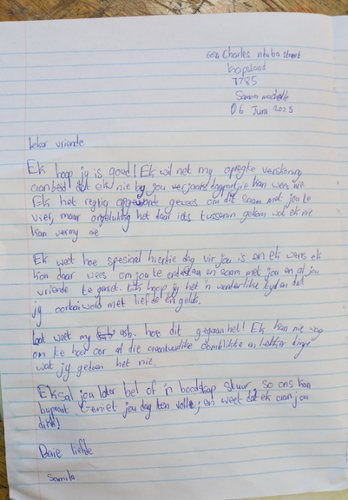 Charles ntaba street
7785
Samora machelle
06 Juni 2025
Liewe vriende
Ek hoop jy is goed! Ek wil net my opregte verskoning
aanbied dat ek nie by jou verjaarsdagpartjie kan wees nie
Ek het regtig opgewonde gewees om dit saam met jou te
vier, maar ongelukkig het daar iets tussenin gekom wat ek nie
kon vermy nie
Ek weet hoe spesiaal hierdie dag vir jou is en ek wens ek
kon daar wees om jou te en saam met jou en al jou
vriende te geniet. Ek hoop jy het 'n wonderlike tyd en dat
jy oorlaai word met liefde en geluk.
Laat weet my asb. hoe dit gegaan het! Ek kan nie wag
om te hoor oor al die oomblikke en lekker dinge
wat jy gedoen het nie.
Ek sal jou later bel of 'n boodskap stuur, so ons kan
bypraat. Geniet jou dag ten volle, en weet dat ek aan jou
dink)
Baie liefde
Samila